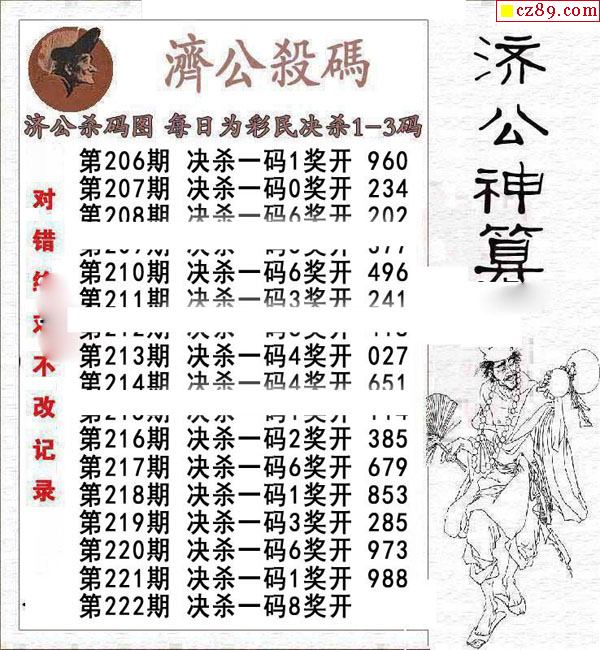 cz89.com
濟公殺碼
济公杀码图 每日为彩民决杀1-3码
第206期 决杀一码1奖开 960
第207期 决杀一码0奖开 234
第208期 决杀一码6奖开 202
第210期 决杀一码6奖开 496
第211期 决杀一码3奖开 241
第213期 决杀一码4奖开 027
第214期 决杀一码4奖开 651
第216期 决杀一码2奖开 385
第217期 决杀一码6奖开 679
第218期 决杀一码1奖开 853
第219期 决杀一码3奖开 285
第220期 决杀一码6奖开 973
第221期 决杀一码1奖开 988
第222期 决杀一码8奖开
对错
不改记录
济公神算